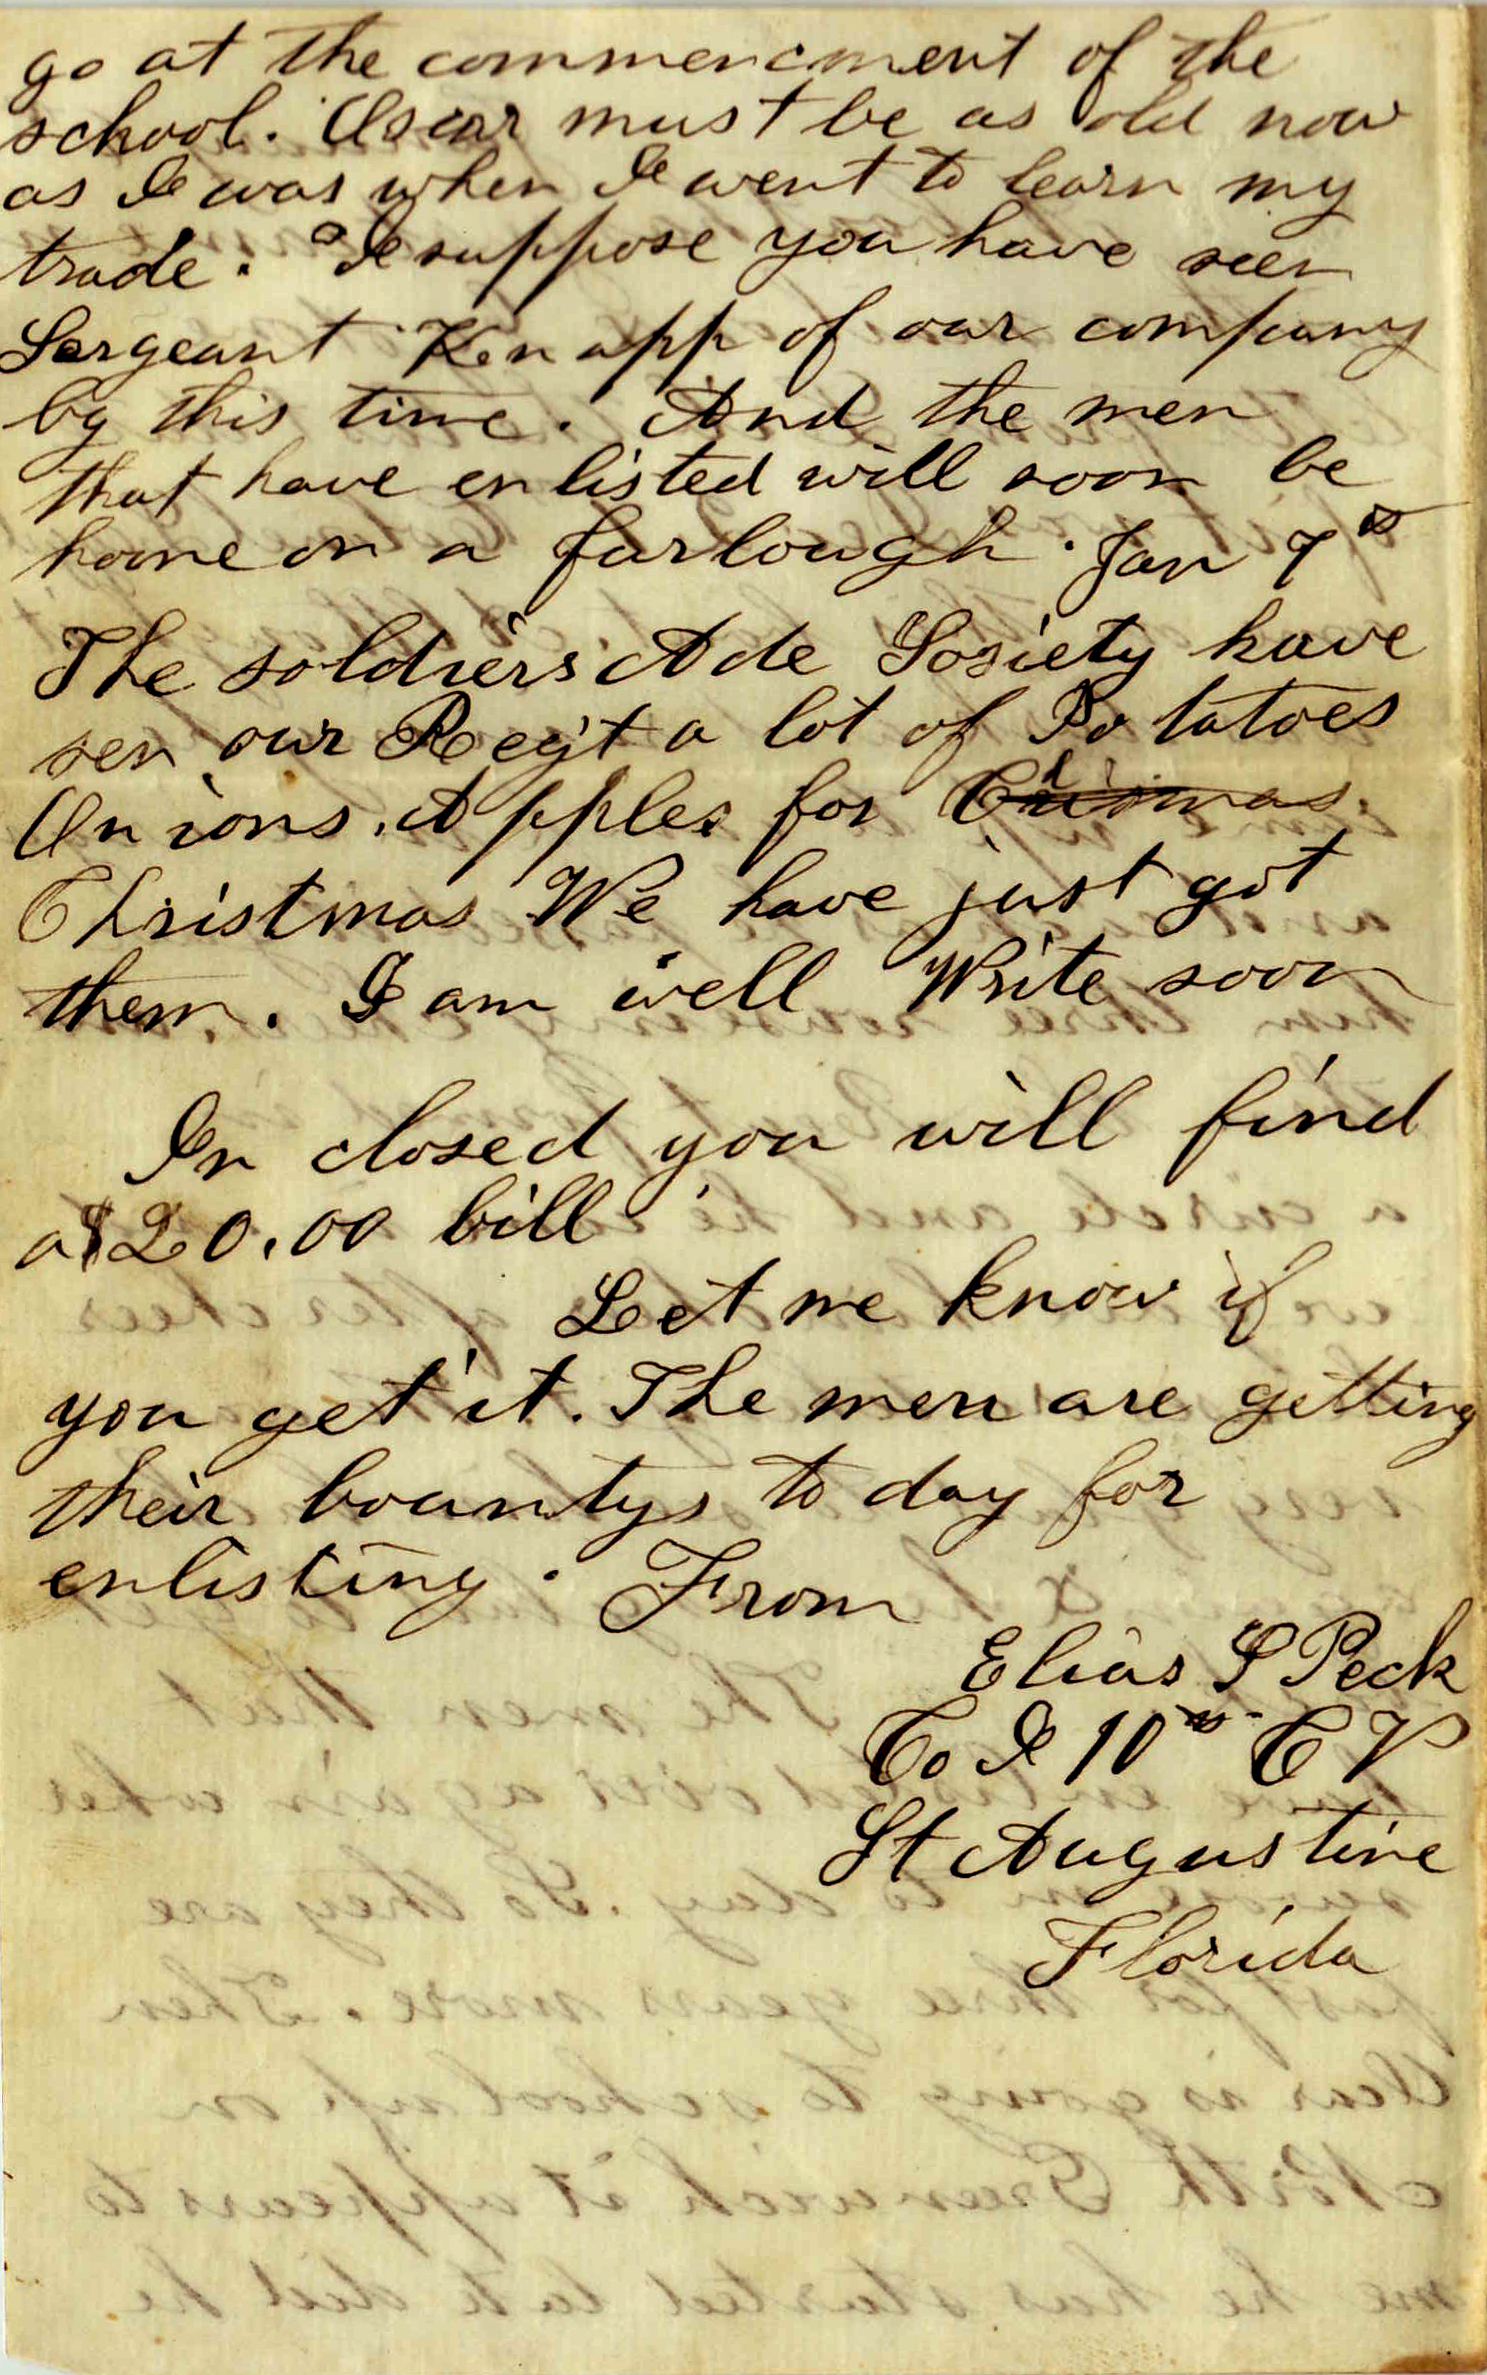 go at the commencment of the
school. Oscar must be as old now
as I was when I went to learn my
trade. I suppose you have seen
Sergeant Knapp of our company
by this time. And the men
that have enlisted will soon be
home on a furlough. Jan 7th
The soldiers Ade Sosiety have
sen our Regt a lot of Potatoes
Onions. Apples for
Christmas We have just got
them. I am well Write soon
In closed you will find
a $20.00 bill
Let me know if
you get it. The men are getting
their bountys to day for
enlisting. From
Elias S Peck
Co I 10th C V
St Augustine
Florida